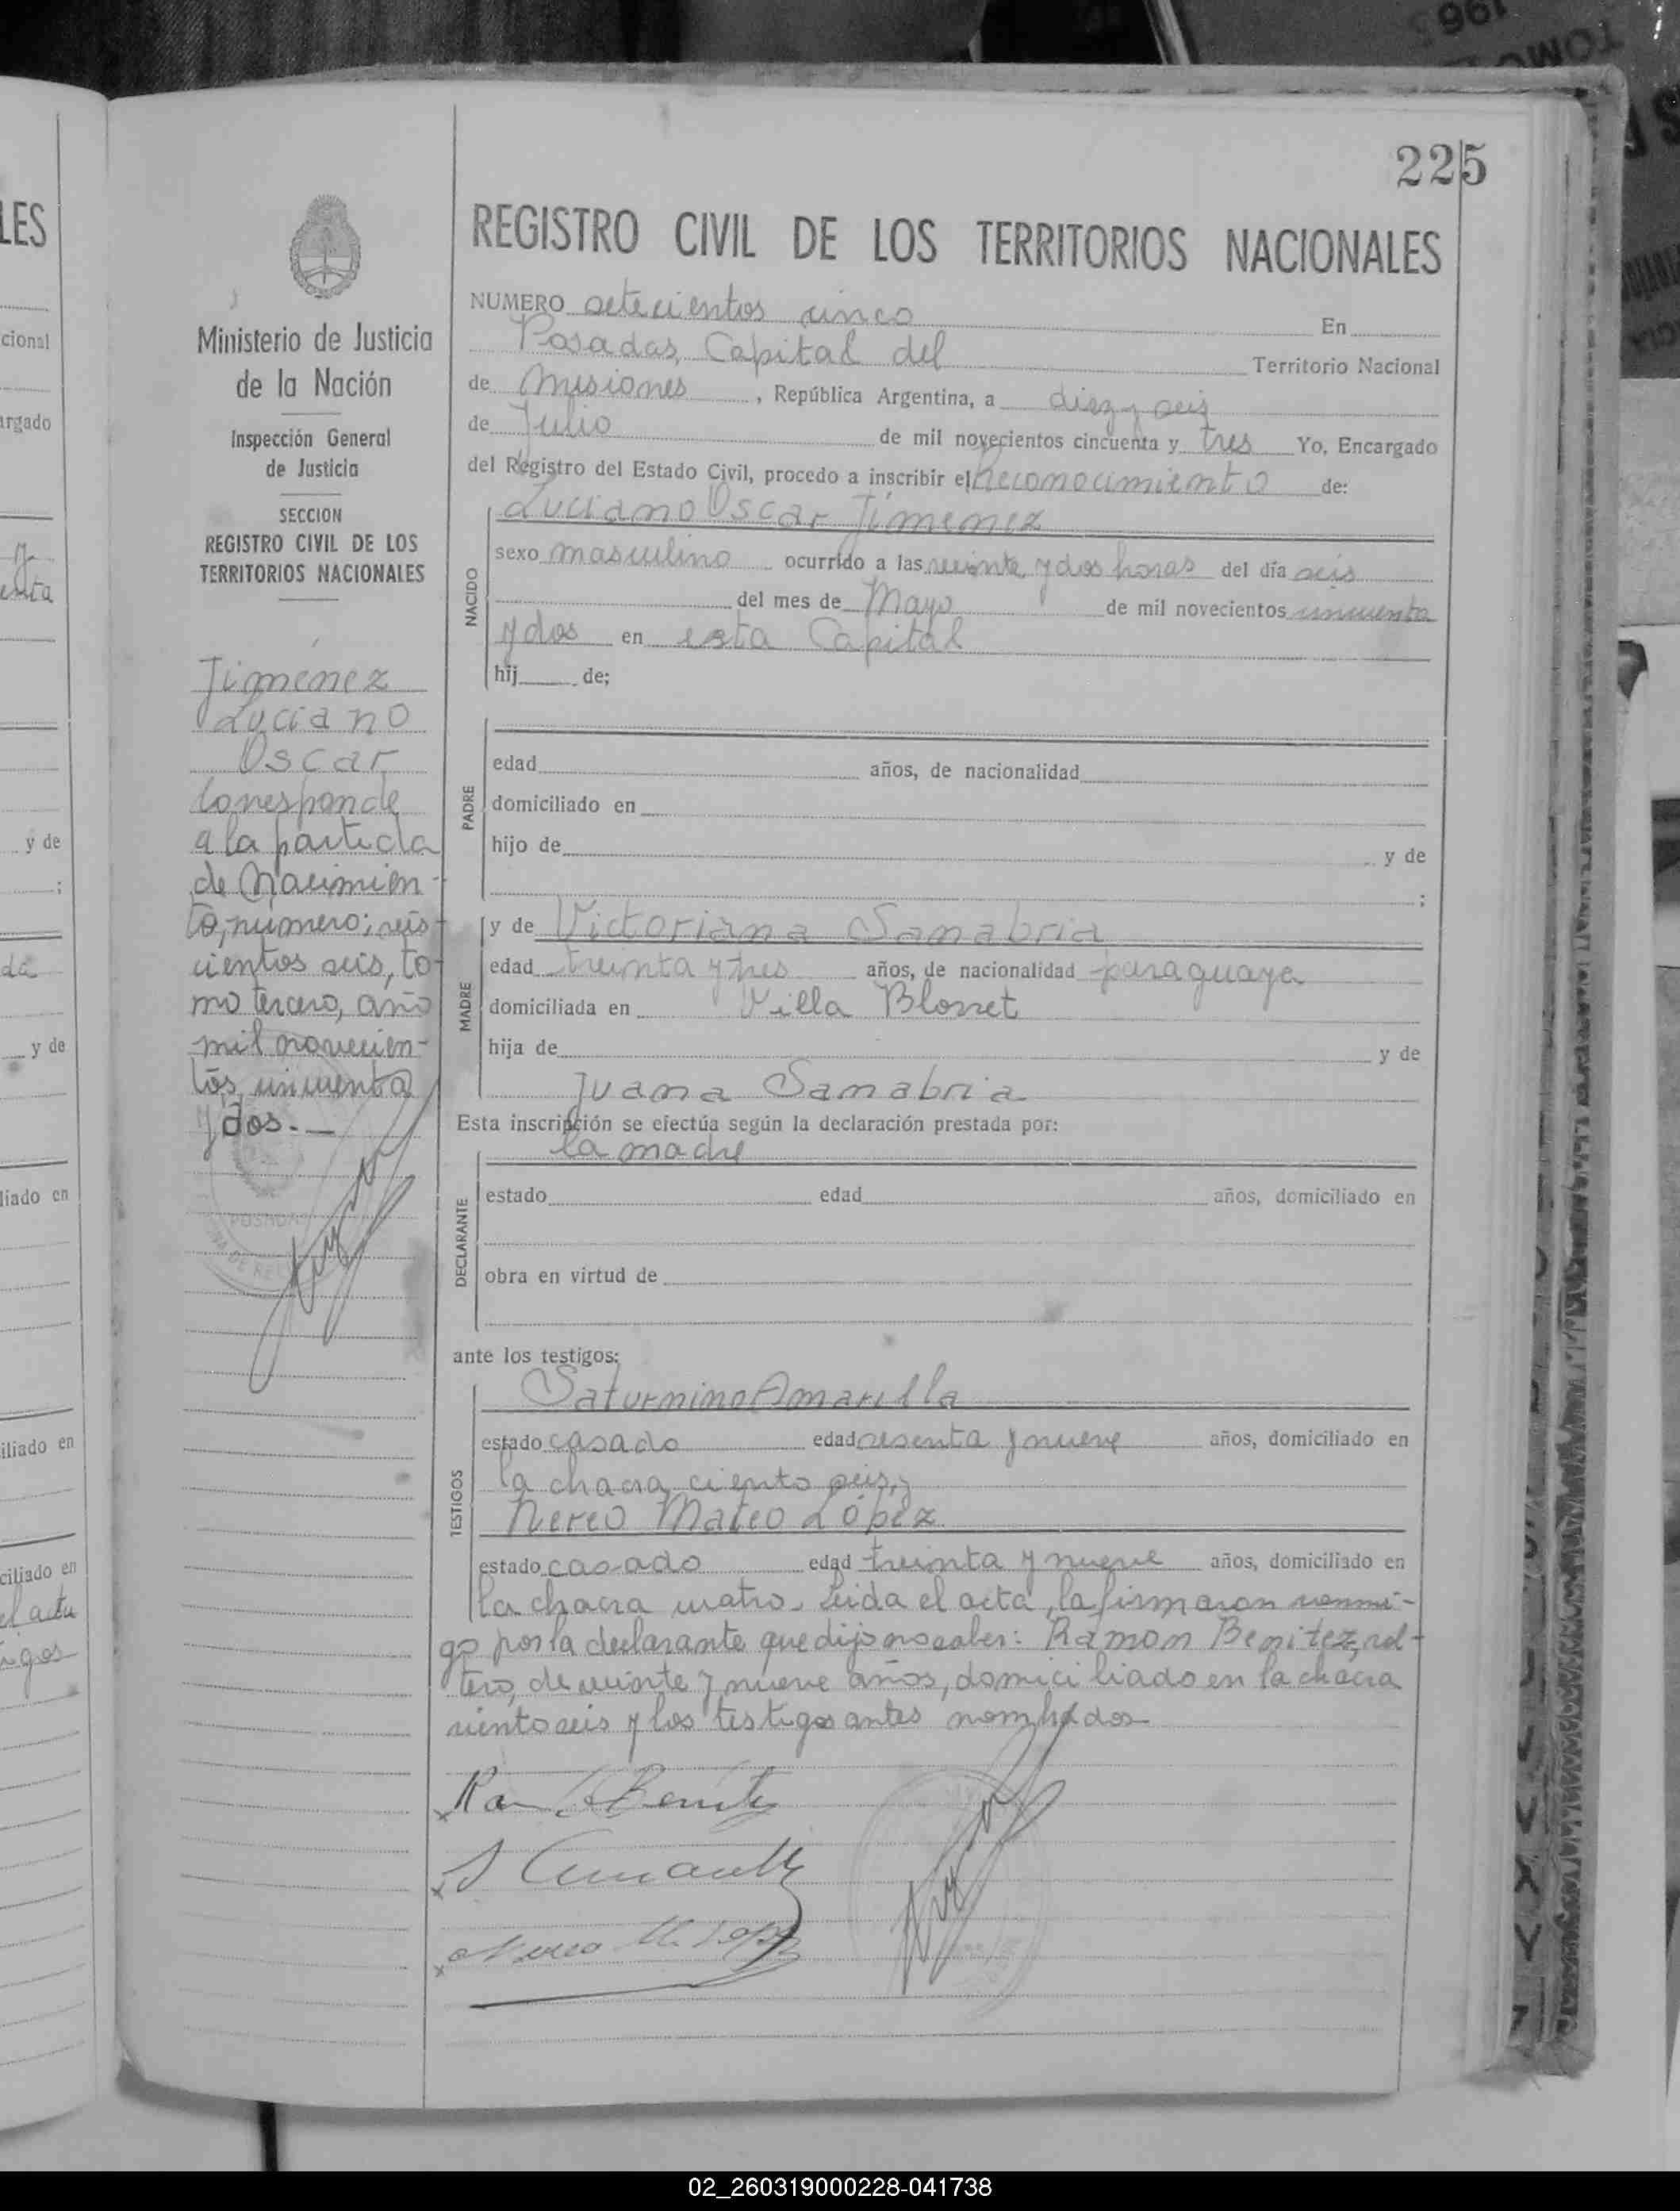 225
REGISTRO CIVIL DE LOS TERRITORIOS NACIONALES
Ministerio de Justicia
de la Nación
Inspección General
de Justicia
SECCION
REGISTRO CIVIL DE LOS
TERRITORIOS NACIONALES
Jiménez
Luciano
Oscar
Corresponde
a la partida
de Nacimien-
to, número; seis-
cientos seis, to-
mo tercero, año
mil novecien-
tos cincuenta
y dos.—
NUMERO setecientos cinco En
Posadas, Capital del Territorio Nacional
de Misiones, República Argentina, a diez y seis
de Julio de mil novecientos cincuenta y tres Yo, Encargado
del Registro del Estado Civil, procedo a inscribir el Reconocimiento de:
Luciano Oscar Jiménez
NACIDO
sexo masculino ocurrido a las veinte y dos horas del día seis
del mes de Mayo de mil novecientos cincuenta
y dos en esta Capital
hij de;
PADRE
edad años, de nacionalidad
domiciliado en
hijo de y de
;
MADRE
y de Victoriana Sanabria
edad treinta y tres años, de nacionalidad paraguaya
domiciliada en Villa Blosset
hija de y de
Juana Sanabria
Esta inscripción se efectúa según la declaración prestada por:
la madre
DECLARANTE
estado edad años, domiciliado en
obra en virtud de
ante los testigos:
TESTIGOS
Saturnino Amarilla
estado casado edad sesenta y nueve años, domiciliado en
la chacra ciento seis, y
Nereo Mateo López
estado casado edad treinta y nueve años, domiciliado en
la chacra cuatro. Leida el acta, la firmaron conmi-
go por la declarante que dijo no saber: Ramon Benitez, sol-
tero, de veinte y nueve años, domiciliado en la chacra
ciento seis y los testigos antes nombrados
Benitez
S Amarilla
Nereo M. Lopez
02_260319000228-041738